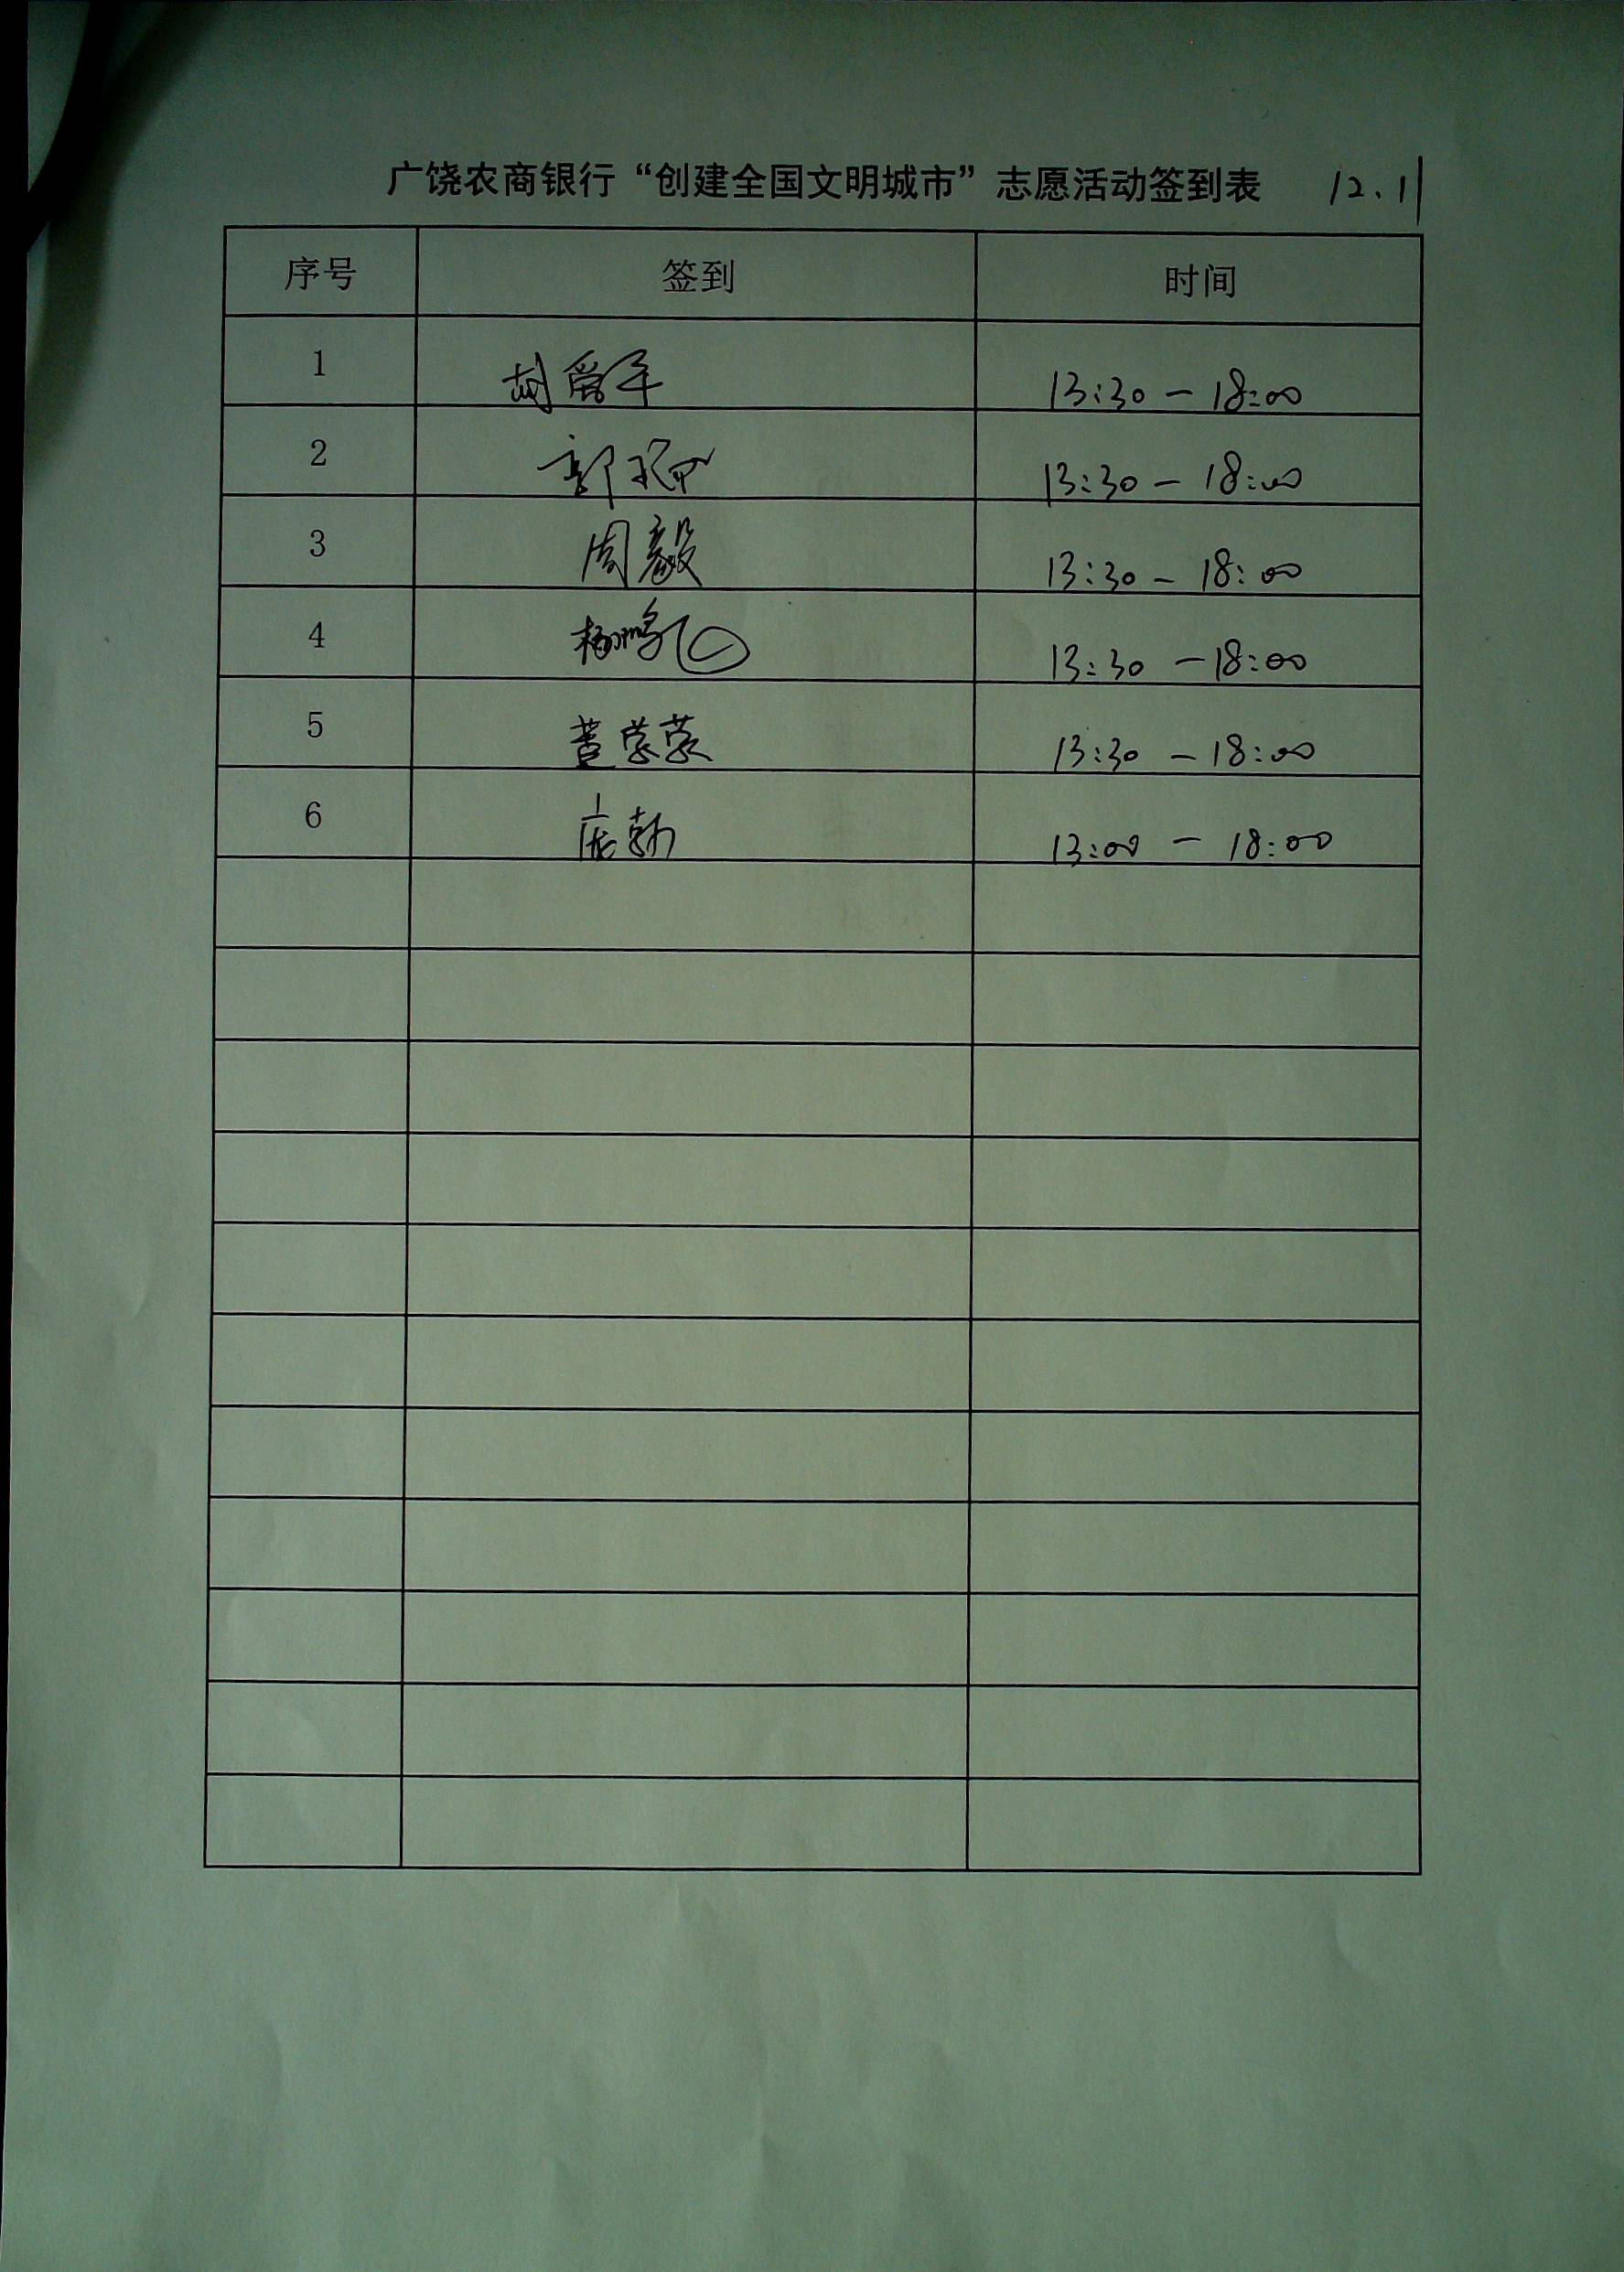 广饶农商银行“创建全国文明城市”志愿活动签到表 12.11
序号 签到 时间
1 胡爱军 13:30-18:00
2 郭 13:30-18:00
3 周毅 13:30-18:00
4 杨鹏飞 13:30-18:00
5 董蒙蒙 13:30-18:00
6 庞勃 13:00-18:00